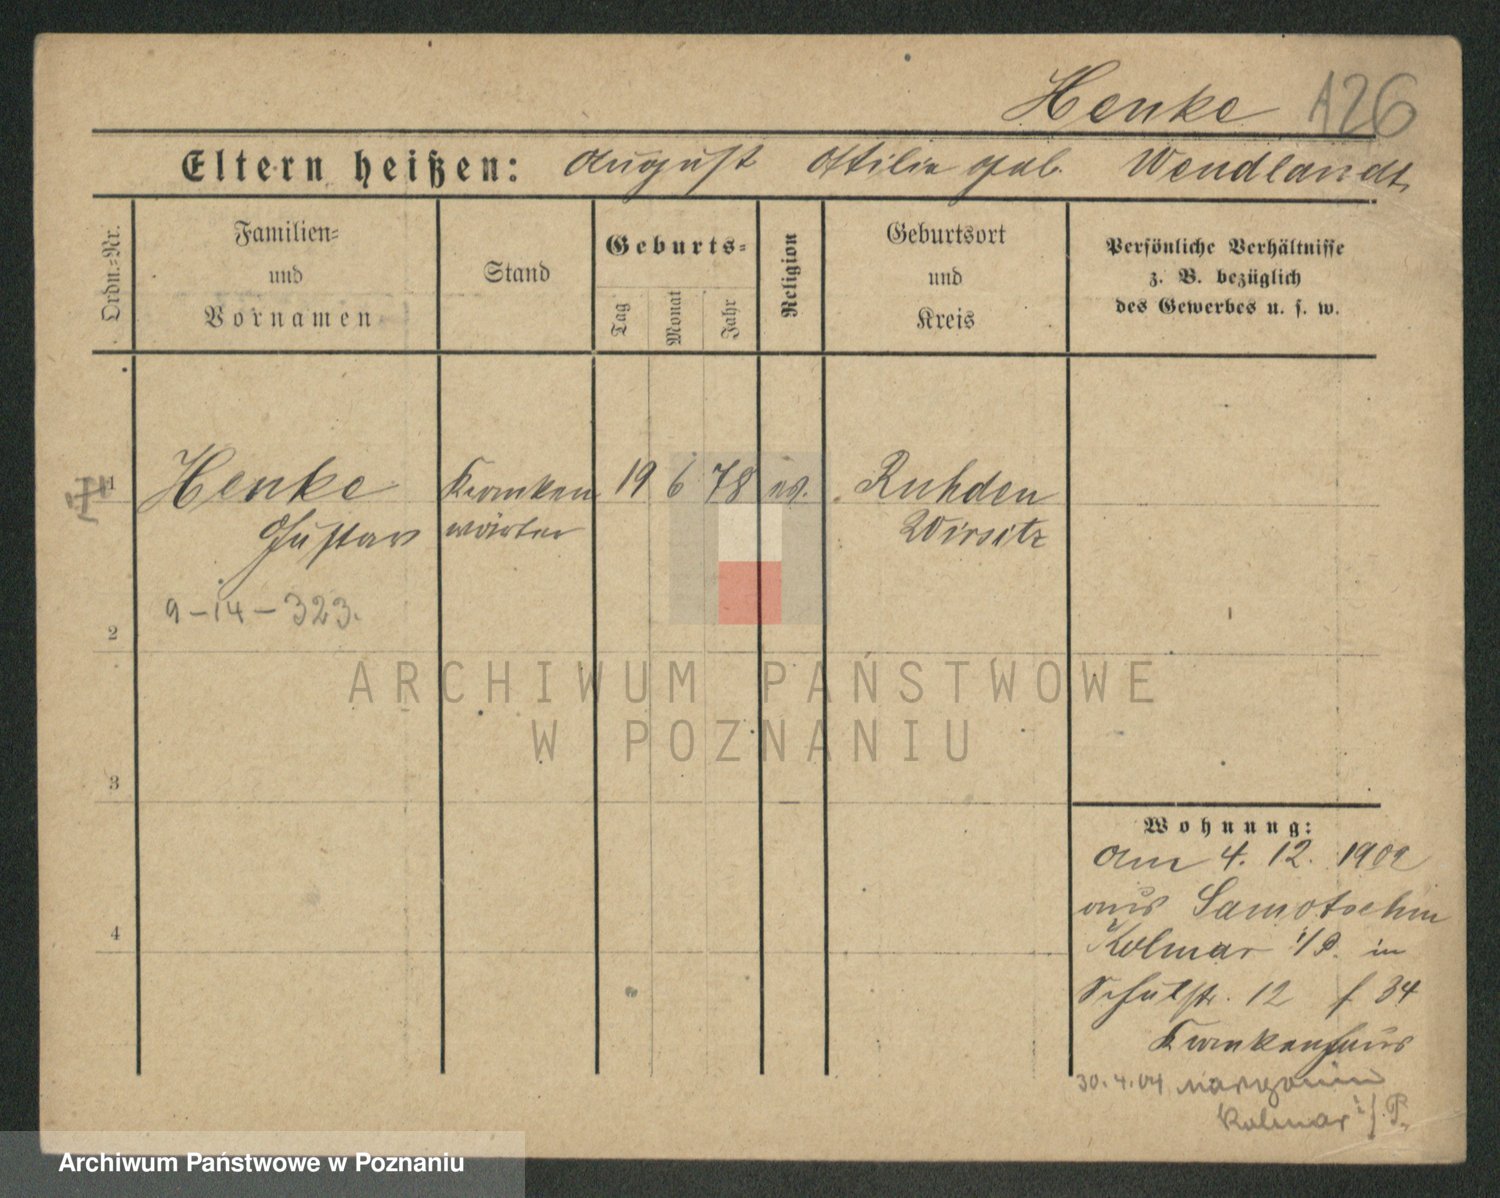 Henke A26
Eltern heißen: August Ottilie geb. Wendlandt
Ordn.-Nr.
Familien-
und
Vornamen
Stand
Geburts-
Tag
Monat
Jahr
Religion
Geburtsort
und
Kreis
Persönliche Verhältnisse
z. B. bezüglich
des Gewerbes u. s. w.
1 Henke Kranken 19 6 78 ev. Ruhden
Gustav wärter Wirsitz
9-14-323.
2
3
4
Wohnung:
Am 4. 12. 1902
aus Samotschin
Kolmar i/P. in
Schulstr. 12 f 34
Krankenhaus
30.4.04 Margonin
Kolmar i/P.
ARCHIWUM PAŃSTWOWE
W POZNANIU
Archiwum Państwowe w Poznaniu